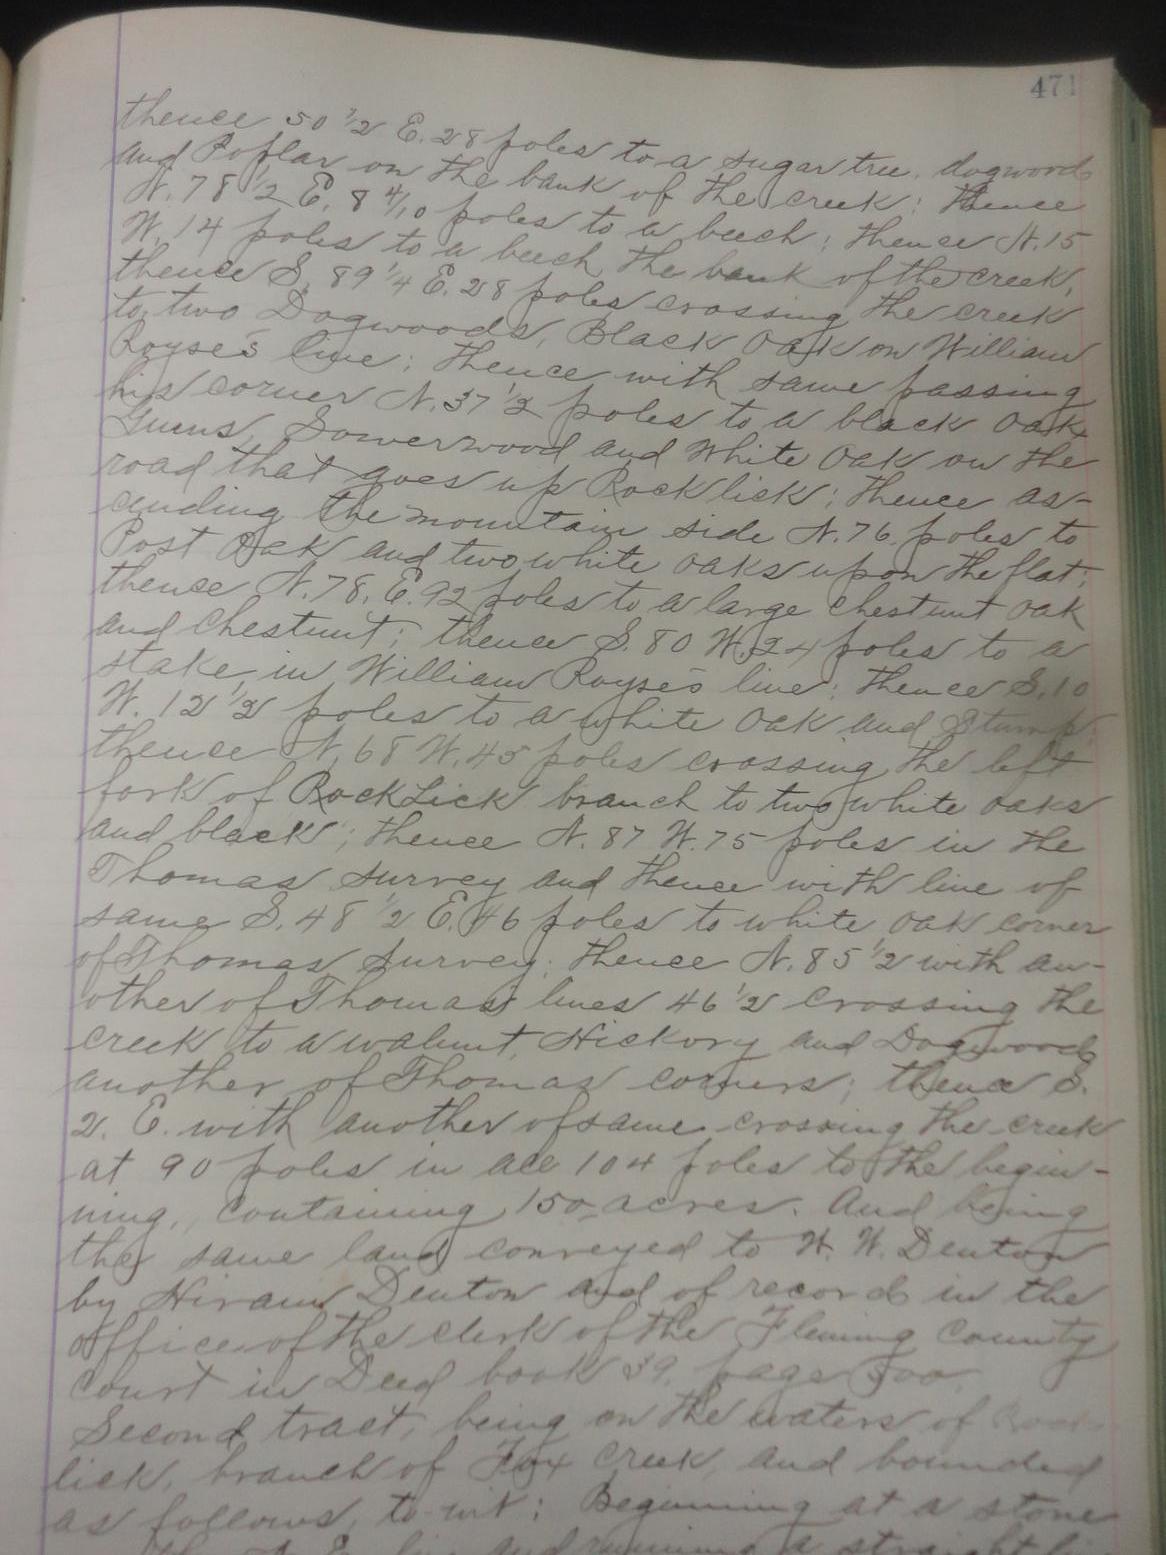 471
thence 50 1/2 E. 28 poles to a sugar tree, dogwoods
and Poplar on the bank of the creek; thence
N. 78 1/2 E. 8 4/10 poles to a beech; thence N. 15
W. 14 poles to a beech the bank of the creek,
thence S. 89 1/4 E. 28 poles crossing the creek
to two Dogwoods, Black Oak on William
Royse's line; thence with same passing
his corner N. 37 1/2 poles to a black Oak,
Gums, Sowerwood and White Oak on the
road that goes up Rock lick; thence as-
cending the mountain side N. 76 poles to
Post Oak and two white oaks upon the flat;
thence N. 78. E. 92 poles to a large chestnut oak
and chestnut; thence S. 80 W. 24 poles to a
stake in William Royse's line; thence S. 10
W. 12 1/2 poles to a white oak and Stump;
thence N. 68 W. 45 poles crossing the left
fork of Rock Lick branch to two white oaks
and black; thence N. 87 W. 75 poles in the
Thomas survey and thence with line of
same S. 48 1/2 E. 46 poles to white oak corner
of Thomas survey; thence N. 85 1/2 with an-
other of Thomas' lines 46 1/2 crossing the
creek to a walnut, Hickory and Dogwood
another of Thomas corners; thence S.
2. E. with another of same crossing the creek
at 90 poles in all 104 poles to the begin-
ning, containing 150 acres. And being
the same land conveyed to W. W. Denton
by Hiram Denton and of record in the
office of the clerk of the Fleming County
Court in Deed book 39, page 500.
Second tract, being on the waters of Rock
lick, branch of Fox Creek, and bounded
as follows, to-wit: Beginning at a stone
and running a straight